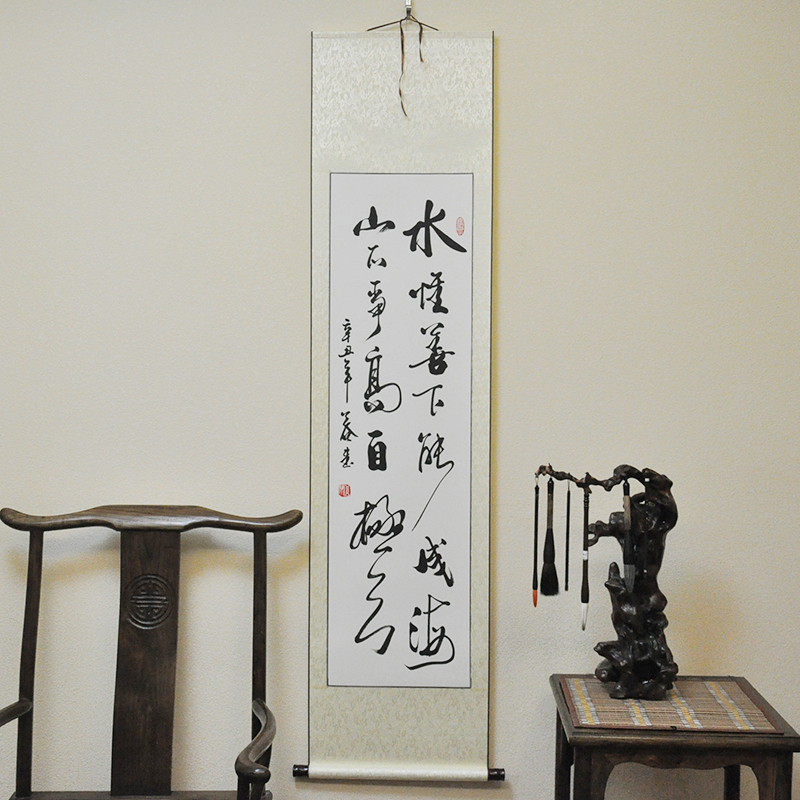 水惟善下能成海
山不争高自极天
辛丑年